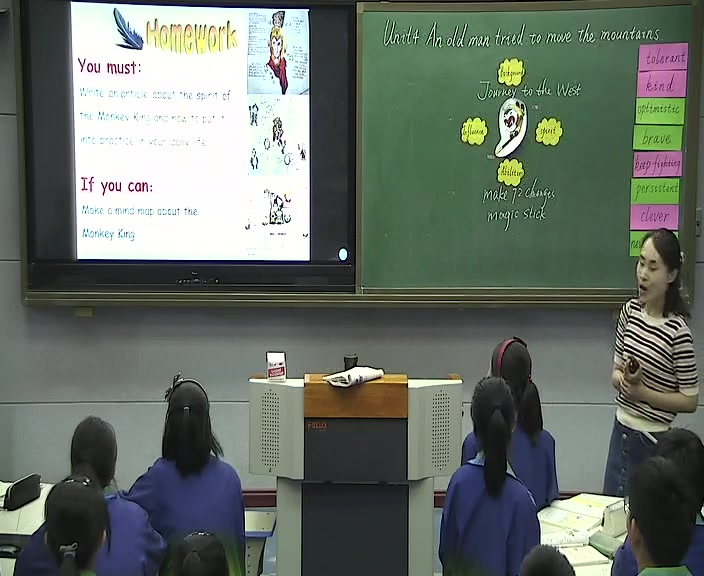 Homework
You must:
Write an article about the spirit of
the Monkey King and how to put it
into practice in your daily life.
If you can:
Make a mind map about the
Monkey King
Unit4 An old man tried to move the mountains
background
Journey to the West
influence
spirit
abilities
make 72 changes
magic stick
tolerant
kind
optimistic
brave
keep fighting
persistent
clever
FOCUS